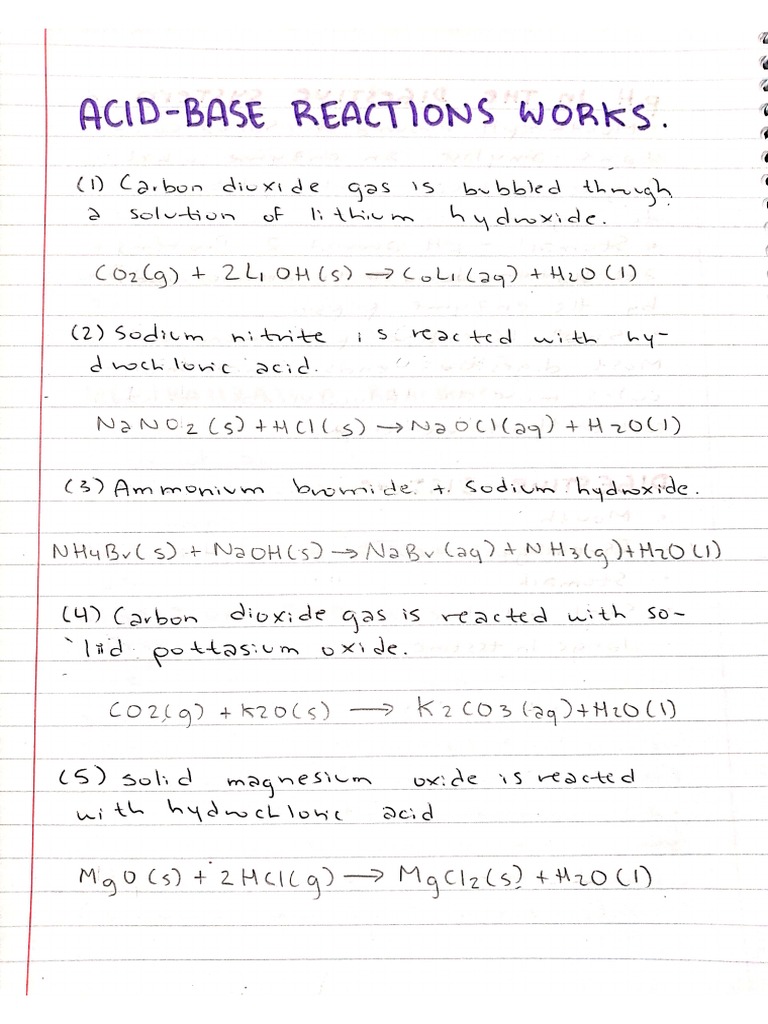 ACID-BASE REACTIONS WORKS.
(1) Carbon dioxide gas is bubbled through
a solution of lithium hydroxide.
CO2(g) + 2LiOH(s) → CoLi(aq) + H2O(l)
(2) Sodium nitrite is reacted with hy-
drochloric acid.
NaNO2(s) + HCl(s) → NaOCl(aq) + H2O(l)
(3) Ammonium bromide + sodium hydroxide.
NH4Br(s) + NaOH(s) → NaBr(aq) + NH3(g) + H2O(l)
(4) Carbon dioxide gas is reacted with so-
lid pottasium oxide.
CO2(g) + K2O(s) → K2CO3(aq) + H2O(l)
(5) solid magnesium oxide is reacted
with hydrochloric acid
MgO(s) + 2HCl(g) → MgCl2(s) + H2O(l)